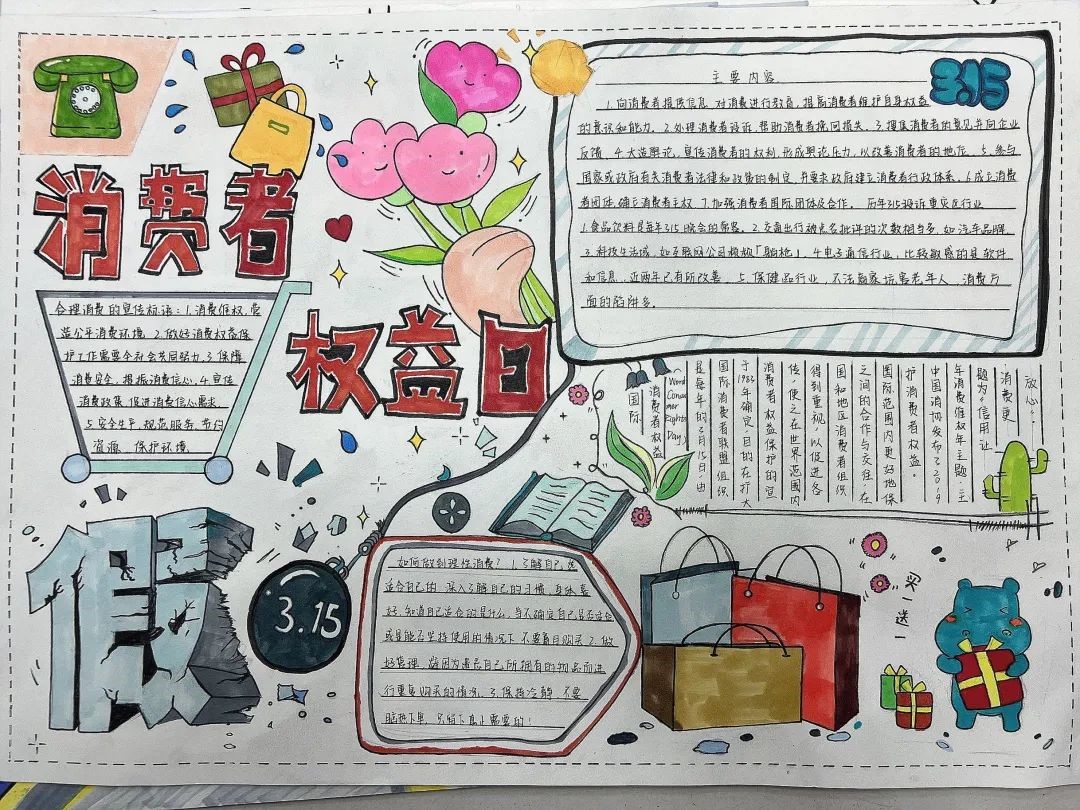 消费者
权益日
3.15
主要内容
1.向消费者提供信息,对消费进行教育,提高消费者维护自身权益
的意识和能力。2.处理消费者投诉,帮助消费者挽回损失。3.搜集消费者的意见并向企业
反馈。4.大造舆论,宣传消费者的权利,形成舆论压力,以改善消费者的地位。5.参与
国家或政府有关消费者法律和政策的制定,并要求政府建立消费者行政体系。6.成立消费
者团体,确立消费者主权。7.加强消费者国际团体及合作。历年315投诉重灾区行业
1.食品饮料是每年315晚会的常客。2.交通出行被点名批评的次数相当多,如汽车品牌。
3.科技生活域,如互联网公司频频「躺枪」。4.电子通信行业,比较敏感的是软件
和信息,近两年已有所改善。5.保健品行业,不法商家坑害老年人,消费方
面的陷阱多。
合理消费的宣传标语:1.消费维权,营
造公平消费环境。2.做好消费权益保
护工作需要全社会共同努力。3.保障
消费安全,提振消费信心。4.宣传
消费政策,促进消费信心需求。
5.安全生产,规范服务,节约
资源,保护环境。
国际
消费者权益
(World Consumer Rights Day)
是每年的3月15日,由
国际消费者联盟组织
于1983年确定,目的在扩大
消费者权益保护的宣
传,使之在世界范围内
得到重视,以促进各
国和地区消费者组织
之间的合作与交往,在
国际范围内更好地保
护消费者权益。
中国消协发布了2019
年消费维权年主题:主
题为“信用让
消费更
放心”
假
3.15
如何做到理性消费?1.了解自己选
适合自己的,深入了解自己的习惯,身体喜
好,知道自己适合的是什么,与不确定自己是否适合
或是能否坚持使用的情况下,不要盲目购买。2.做
好管理,避因为遗忘自己所拥有的物品而进
行重复购买的情况。3.保持冷静,不要
脑热下单,只留下真正需要的!
买一送一